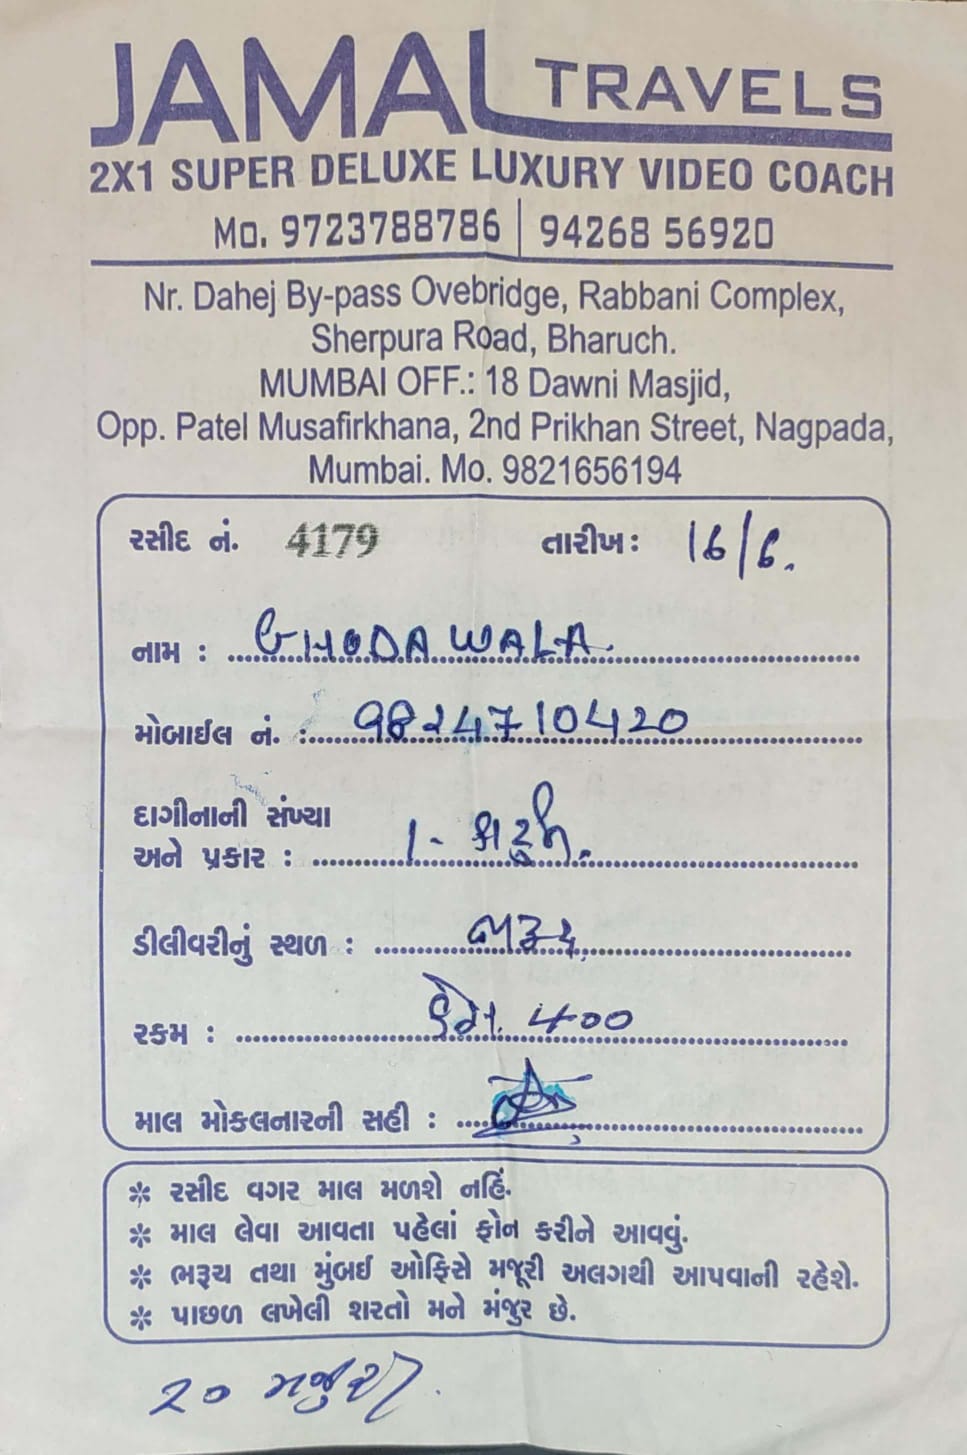 JAMAL TRAVELS
2X1 SUPER DELUXE LUXURY VIDEO COACH
Mo. 9723788786 | 94268 56920
Nr. Dahej By-pass Ovebridge, Rabbani Complex,
Sherpura Road, Bharuch.
MUMBAI OFF.: 18 Dawni Masjid,
Opp. Patel Musafirkhana, 2nd Prikhan Street, Nagpada,
Mumbai. Mo. 9821656194
રસીદ નં. 4179 તારીખ: 16/6.
નામ : GHODAWALA.
મોબાઈલ નં. : 9824710420
દાગીનાની સંખ્યા
અને પ્રકાર : 1 -
ડીલીવરીનું સ્થળ : ભરૂચ
રકમ : 400
માલ મોકલનારની સહી :
* રસીદ વગર માલ મળશે નહિં.
* માલ લેવા આવતા પહેલાં ફોન કરીને આવવું.
* ભરૂચ તથા મુંબઈ ઓફિસે મજૂરી અલગથી આપવાની રહેશે.
* પાછળ લખેલી શરતો મને મંજુર છે.
20 મજુરી.